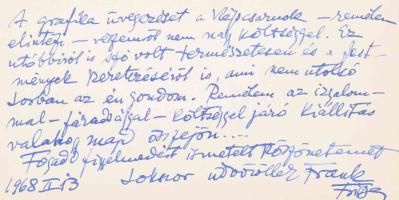 A grafika üvegezését a Képcsarnok – remélem
elintézi – részemről nem nagy költséggel. Ez
utóbbiról is szó volt természetesen és a fest-
mények keretezéséről is, ami nem utolsó
sorban az én gondom. Remélem az izgalom-
mal – fáradsággal – költséggel járó kiállítás
valahogy majd összejön...!
Fogadd figyelmedért ismételt köszönetemet
1968 II 13 sokszor üdvözöllek Frank